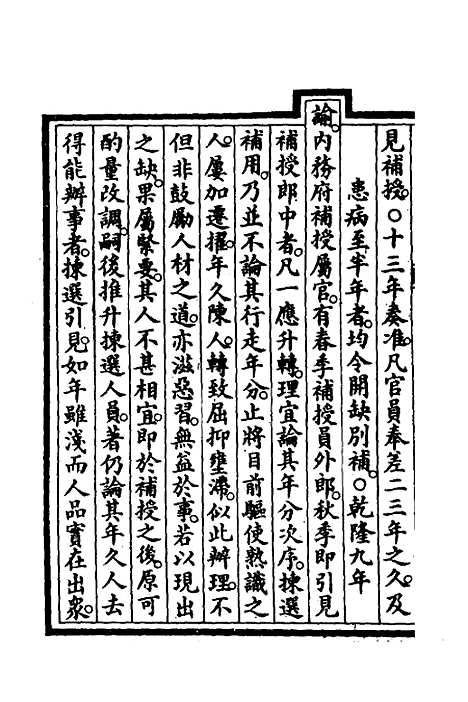 見補授。○十三年奏准。凡官員奉差二三年之久。及
患病至半年者。均令開缺別補。○乾隆九年
諭。內務府補授屬官。有春季補授員外郎。秋季即引見
補授郎中者。凡一應升轉。理宜論其年分次序。揀選
補用。乃並不論其行走年分。止將目前驅使熟識之
人。屢加遷擢。年久陳人。轉致屈抑壅滯。似此辦理。不
但非鼓勵人材之道。亦滋惡習。無益於事。若以現出
之缺。果屬緊要。其人不甚相宜。即於補授之後。原可
酌量改調。嗣後推升揀選人員。著仍論其年久人去
得能辦事者。揀選引見。如年雖淺而人品實在出衆。